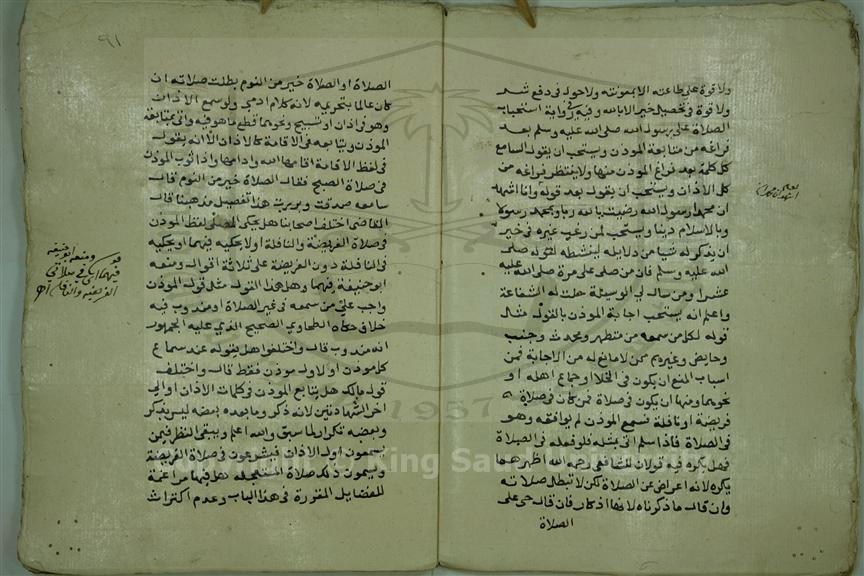 ولا قوة على طاعته الا بمعونته ولا حول في دفع شر
ولا قوة في تحصيل خير الا بالله وفيه في رواية استحباب
الصلاة على رسول الله صلى الله عليه وسلم بعد
فراغه من متابعة الموذن ويستحب ان يقول السامع
كل كلمة بعد فراغ الموذن منها ولا ينتظر فراغه من
كل الاذان ويستحب ان يقول بعد قوله وانا اشهد
ان محمدا رسول الله رضيت بالله ربا وبمحمد رسولا
وبالاسلام دينا ويستحب لمن رغب غيره في خير
ان يذكر له شيا من دلايله لينشطه لقوله صلى
الله عليه وسلم فان من صلى على مرة صلى الله عليه
عشرا ومن سال لي الوسيلة حلت له الشفاعة
واعلم انه يستحب اجابة الموذن بالقول مثل
قوله لكل من سمعه من متطهر ومحدث وجنب
وحايض وغيرهم ممن لا مانع له من الاجابة فمن
اسباب المنع ان يكون في الخلا او جماع اهله او
نحوهما ومنها ان يكون في صلاة فمن كان في صلاة
فريضة او نافلة فسمع الموذن لم يوافقه وهو
في الصلاة فاذا سلم اتى بمثله فلو فعله في الصلاة
فهل يكره فيه قولان للشافعي رحمه الله اظهرهما
يكره لانه اعراض عن الصلاة لكن لا تبطل صلاته
وان قال ما ذكرناه لانها اذكار فان قال حي على
الصلاة
٩١
الصلاة او الصلاة خير من النوم بطلت صلاته ان
كان عالما بتحريمه لانه كلام ادمي ولو سمع الاذان
وهو في اذان او تسبيح ونحوهما قطع ما هو فيه واتى بمتابعة
الموذن ويتابعه في الاقامة كالاذان الا انه يقول
في لفظ الاقامة اقامها الله وادامها واذا ثوب الموذن
في صلاة الصبح فقال الصلاة خير من النوم قال
سامعه صدقت وبررت هذا تفصيل مذهبنا قال
القاضي اختلف اصحابنا هل يحكي المصلي لفظ الموذن
في صلاة الفريضة والنافلة او لا يحكيه فيهما او يحكيه
في النافلة دون الفريضة على ثلاثة اقوال ومنعه
ابو حنيفة فيهما وهل هذا القول مثل قول الموذن
واجب على من سمعه في غير الصلاة او مندوب فيه
خلاف حكاه الطحاوي الصحيح الذي عليه الجمهور
انه مندوب قال واختلفوا هل يقوله عند سماع
كل موذن او لاول موذن فقط قال واختلف
قول مالك هل يتابع الموذن في كلمات الاذان او الى
اخر الشهادتين لانه ذكر وما بعده بعضه ليس بذكر
وبعضه تكرار لما سبق والله اعلم ويبقى النظر فيمن
يسمعون اول الاذان فيشرعون في صلاة الفريضة
ويسمون ذلك صلاة المستعجله هل فيها مراغمة
للفضايل المقررة في هذا الباب وعدم اكتراث
ومنعه ابو حنيفه
فيهما
King Saud University
1957